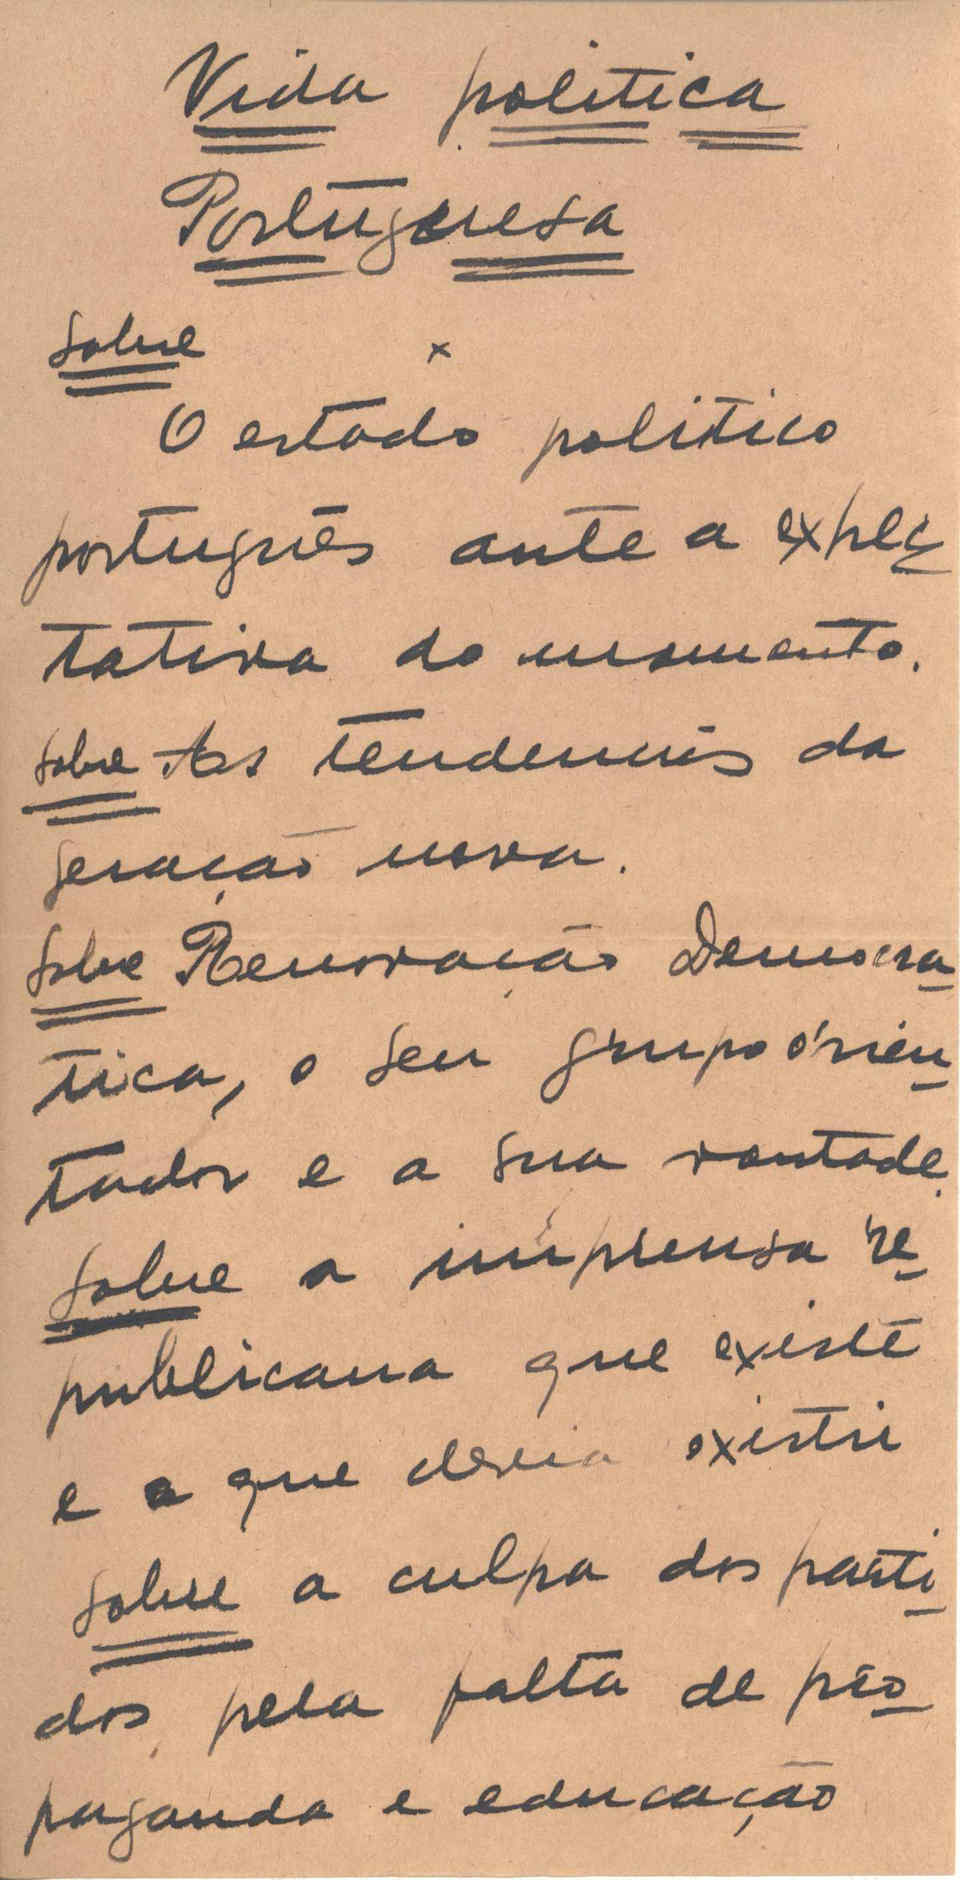 Vida politica
Portuguesa
Sobre x
O estado politico
português ante a expec
tativa do momento.
Sobre As tendencias da
geração nova.
Sobre Renovação Democra
tica, o seu grupo orien
tador e a sua vontade.
Sobre a imprensa re
publicana que existe
e a que devia existir
Sobre a culpa dos parti
dos pela falta de pro
paganda e educação